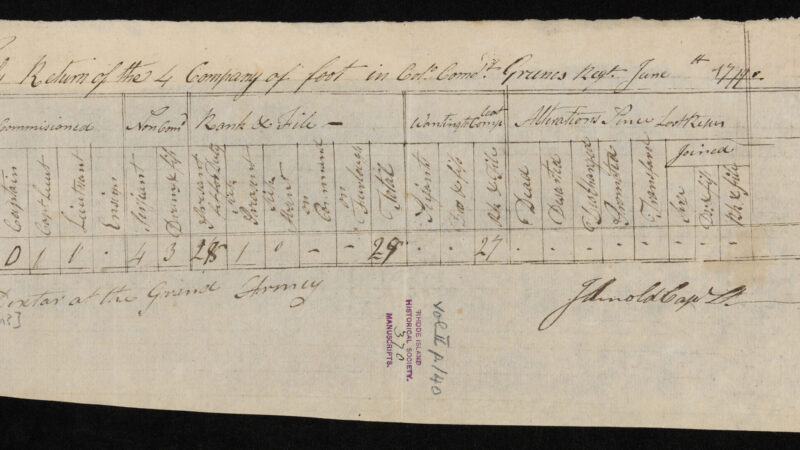 Return of the 4 Company of foot in Colo. Comdt. Greenes Regt. June
Commisioned Non Comd Rank & File — Wanting to Comp Alterations Since Last Return
Joined
Captain
Capt Lieut
Lieutnant
Ensign
Serjant
Drum & fif
Present
Sick
Present
Sick
on Command
on Furlough
Total
Serjant
Rk & File
Dead
Deserted
Discharged
Promoted
Transfared
Ser
Rk & file
0 1 1 . 4 3 28 1 0 - - 29 . . 27 . . . . . . . .
Dexter at the Grand Armey
J Arnold Capt Lt.
RHODE ISLAND
HISTORICAL SOCIETY.
370
MANUSCRIPTS.
Vol. II p 140